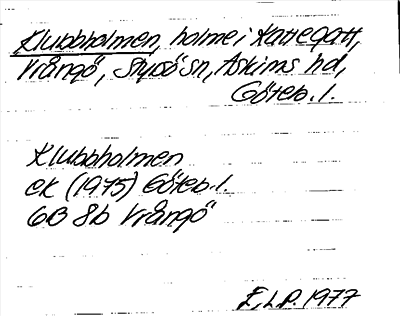 Klubbholmen, holme i Kattegatt,
Vrångö, Styrsö sn, Askims hd,
Göteb. l.
Klubbholmen
ek (1975) Göteb. l.
6B 8b Vrångö
E.L.P. 1977